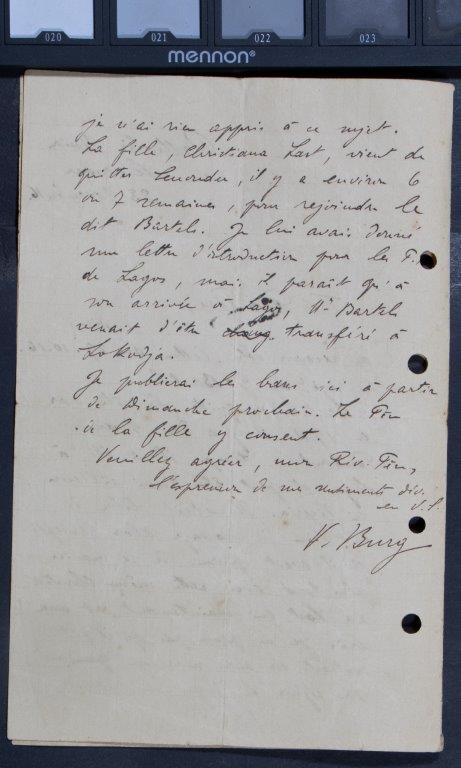 020 021 022 023
mennon®
je n'ai rien appris à ce sujet.
La fille, Christiana Last, vient de
quitter , il y a environ 6
ou 7 semaines, pour rejoindre le
dit Bartels. Je lui avais donné
une lettre d'introduction pour les P.
de Lagos, mais il paraît qu'à
son arrivée à Lagos, Mr Bartels
venait d'être transféré à
Lokodja.
Je publierai les bans ici à partir
de Dimanche prochain. Le
de la fille y consent.
Veuillez agréer, mon Rév. Père,
l'expression de mes sentiments dév.
en J.C.
V. Burg